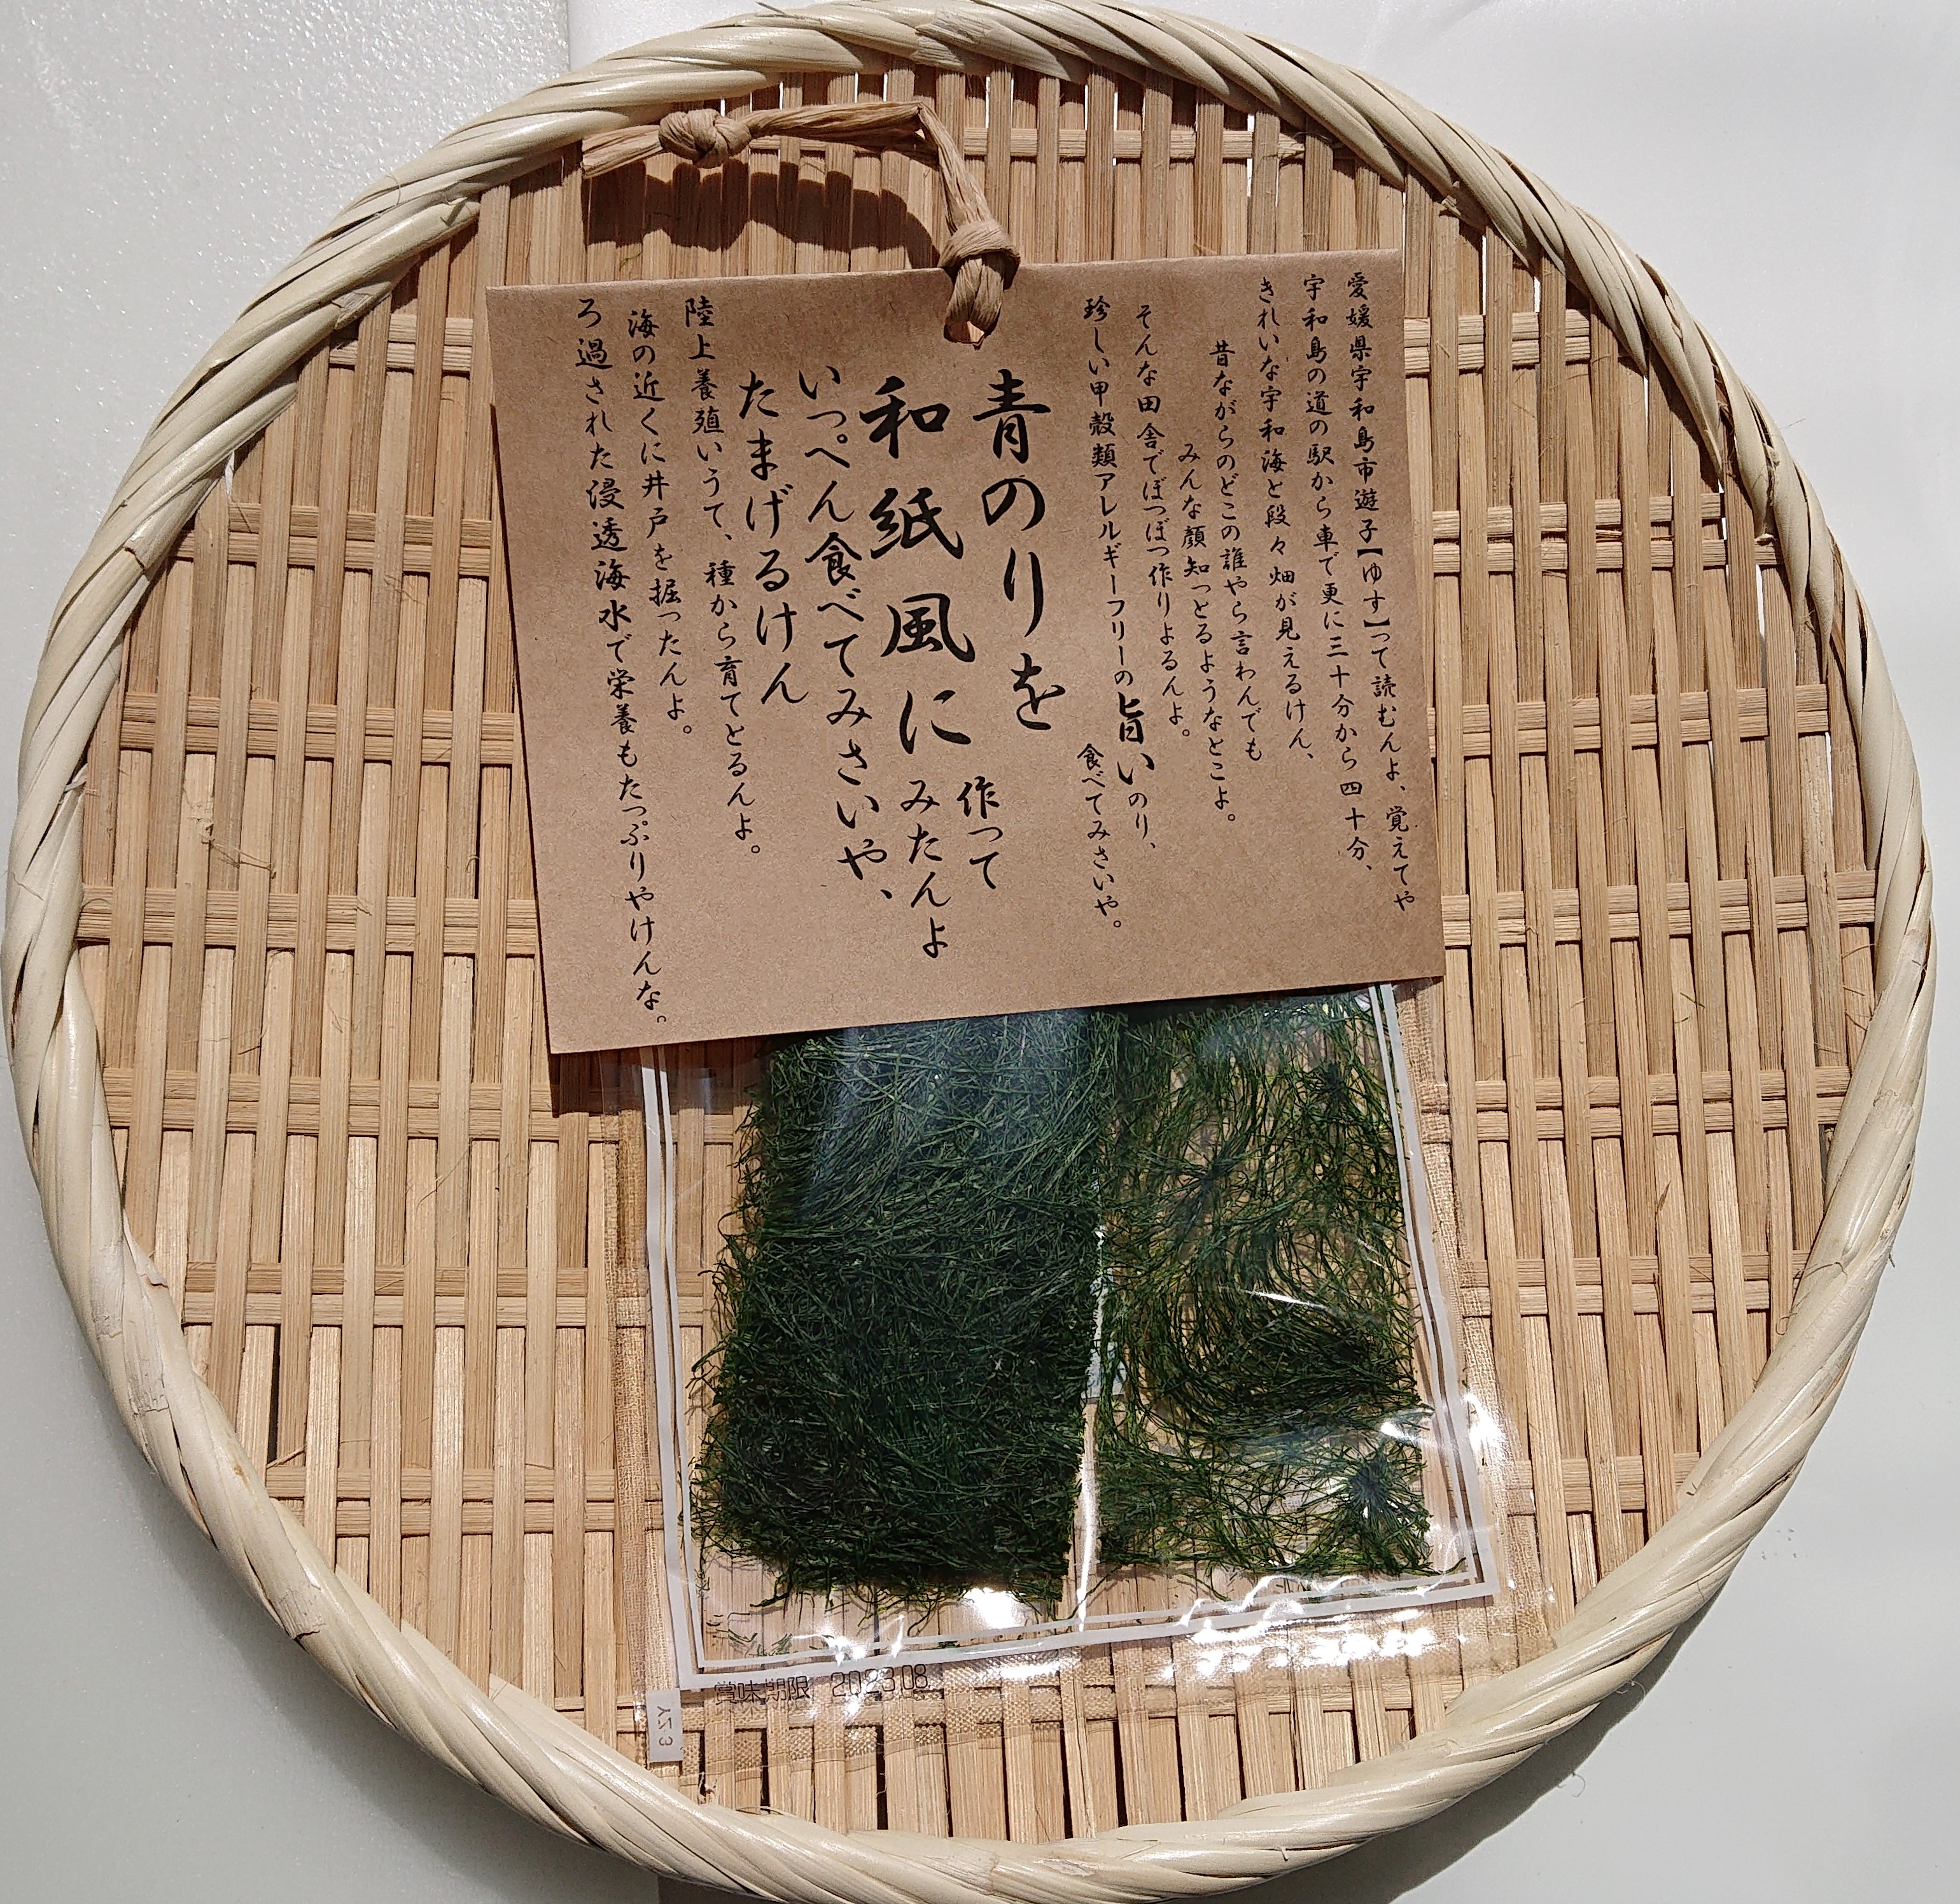 愛媛県宇和島市遊子【ゆす】って読むんよ、覚えてや
宇和島の道の駅から車で更に三十分から四十分、
きれいな宇和海と段々畑が見えるけん、
昔ながらのどこの誰やら言わんでも
みんな顔知っとるようなとこよ。
そんな田舎でぼつぼつ作りよるんよ。
珍しい甲殻類アレルギーフリーの旨いのり、
食べてみさいや。
青のりを作って
和紙風にみたんよ
いっぺん食べてみさいや、
たまげるけん
陸上養殖いうて、種から育てとるんよ。
海の近くに井戸を掘ったんよ。
ろ過された浸透海水で栄養もたっぷりやけんな。
賞味期限 2023.08